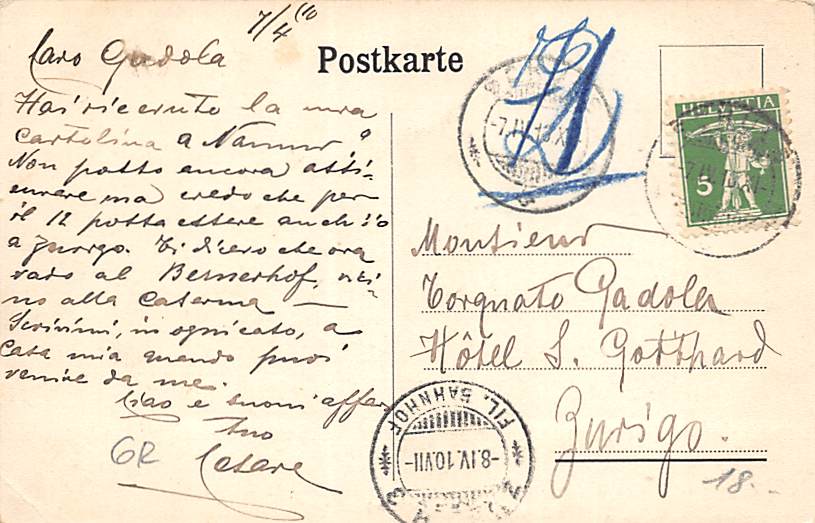 7/4 10
Caro Gadola
Hai ricevuto la mia
cartolina a Namur?
Non posso ancora assi-
curare ma credo che per
il 12 possa essere anch'io
a Zurigo. Ti dicero che ora
vado al Bernerhof, vici-
no alla Caserma —
Scrivimi, in ogni caso, a
casa mia quando puoi
venire da me.
Ciao e buoni affari
tuo
Cesare
GR
Postkarte
HELVETIA
5
-7.IV.10.X
Monsieur
Torquato Gadola
Hôtel S. Gotthard
Zurigo.
18.-
FIL. BAHNHOF
-8.IV.10.VII-